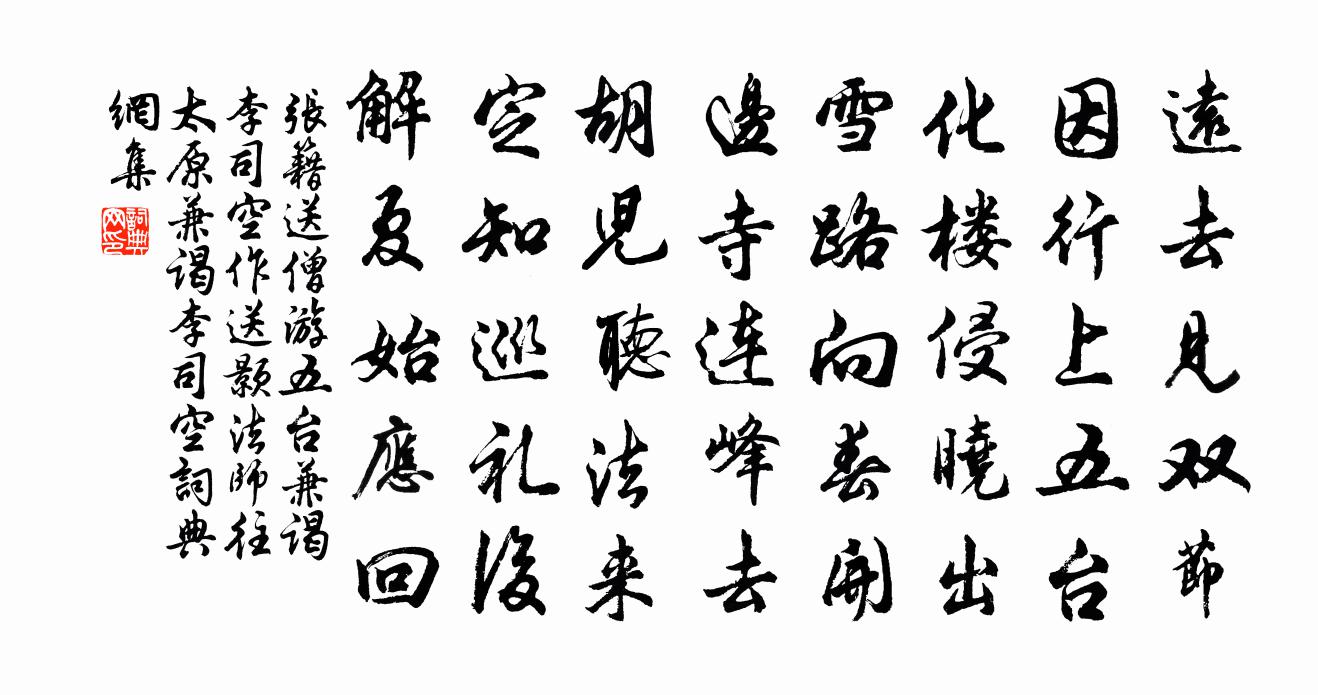 遠去見双節
因行上五台
化楼侵曉出
雪路向春開
邊寺连峰去
胡児聽法来
定知巡礼後
解夏始應回
張籍送僧游五台兼謁
李司空作送颢法師往
太原兼謁李司空詞典
網集
詞典网印